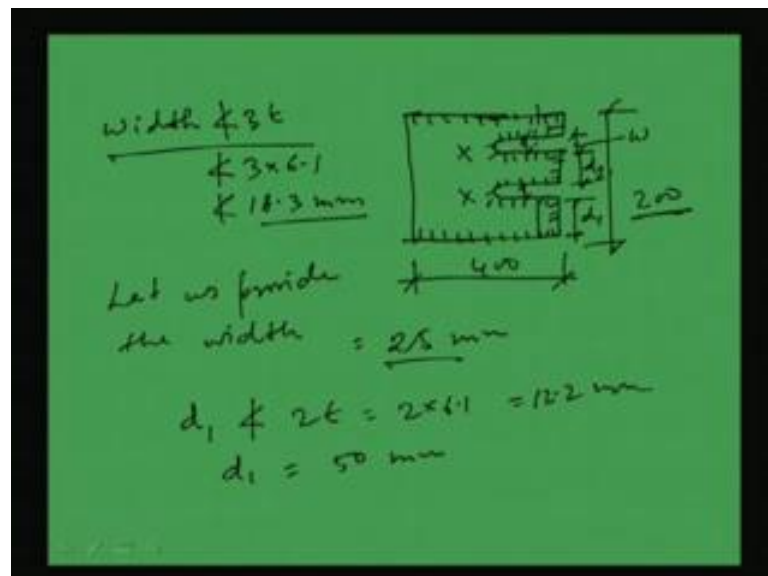 width ≮ 3t
≮ 3×6.1
≮ 18.3 mm
x
x
w
d1
200
400
Let us provide
the width = 25 mm
d1 ≮ 2t = 2×6.1 = 12.2 mm
d1 = 50 mm